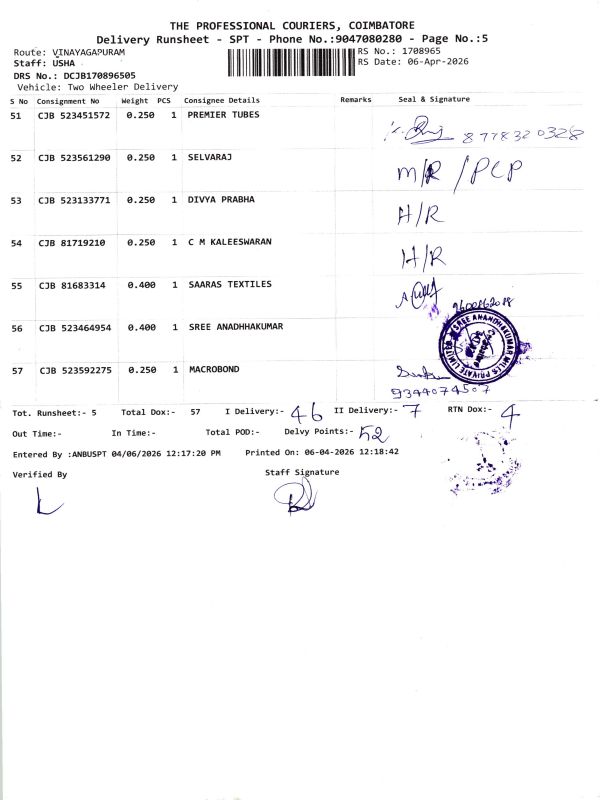 THE PROFESSIONAL COURIERS, COIMBATORE
Delivery Runsheet - SPT - Phone No.:9047080280 - Page No.:5
Route: VINAYAGAPURAM
Staff: USHA
DRS No.: DCJB170896505
Vehicle: Two Wheeler Delivery
RS No.: 1708965
RS Date: 06-Apr-2026
S No Consignment No Weight PCS Consignee Details Remarks Seal & Signature
51 CJB 523451572 0.250 1 PREMIER TUBES 8778320328
52 CJB 523561290 0.250 1 SELVARAJ M/R /PCP
53 CJB 523133771 0.250 1 DIVYA PRABHA H/R
54 CJB 81719210 0.250 1 C M KALEESWARAN H/R
55 CJB 81683314 0.400 1 SAARAS TEXTILES
56 CJB 523464954 0.400 1 SREE ANADHHAKUMAR
SREE ANANDHAKUMAR MILLS PRIVATE LIMITED
57 CJB 523592275 0.250 1 MACROBOND
9344074507
Tot. Runsheet:- 5 Total Dox:- 57 I Delivery:- 46 II Delivery:- 7 RTN Dox:- 4
Out Time:- In Time:- Total POD:- Delvy Points:- 52
Entered By :ANBUSPT 04/06/2026 12:17:20 PM Printed On: 06-04-2026 12:18:42
Verified By Staff Signature